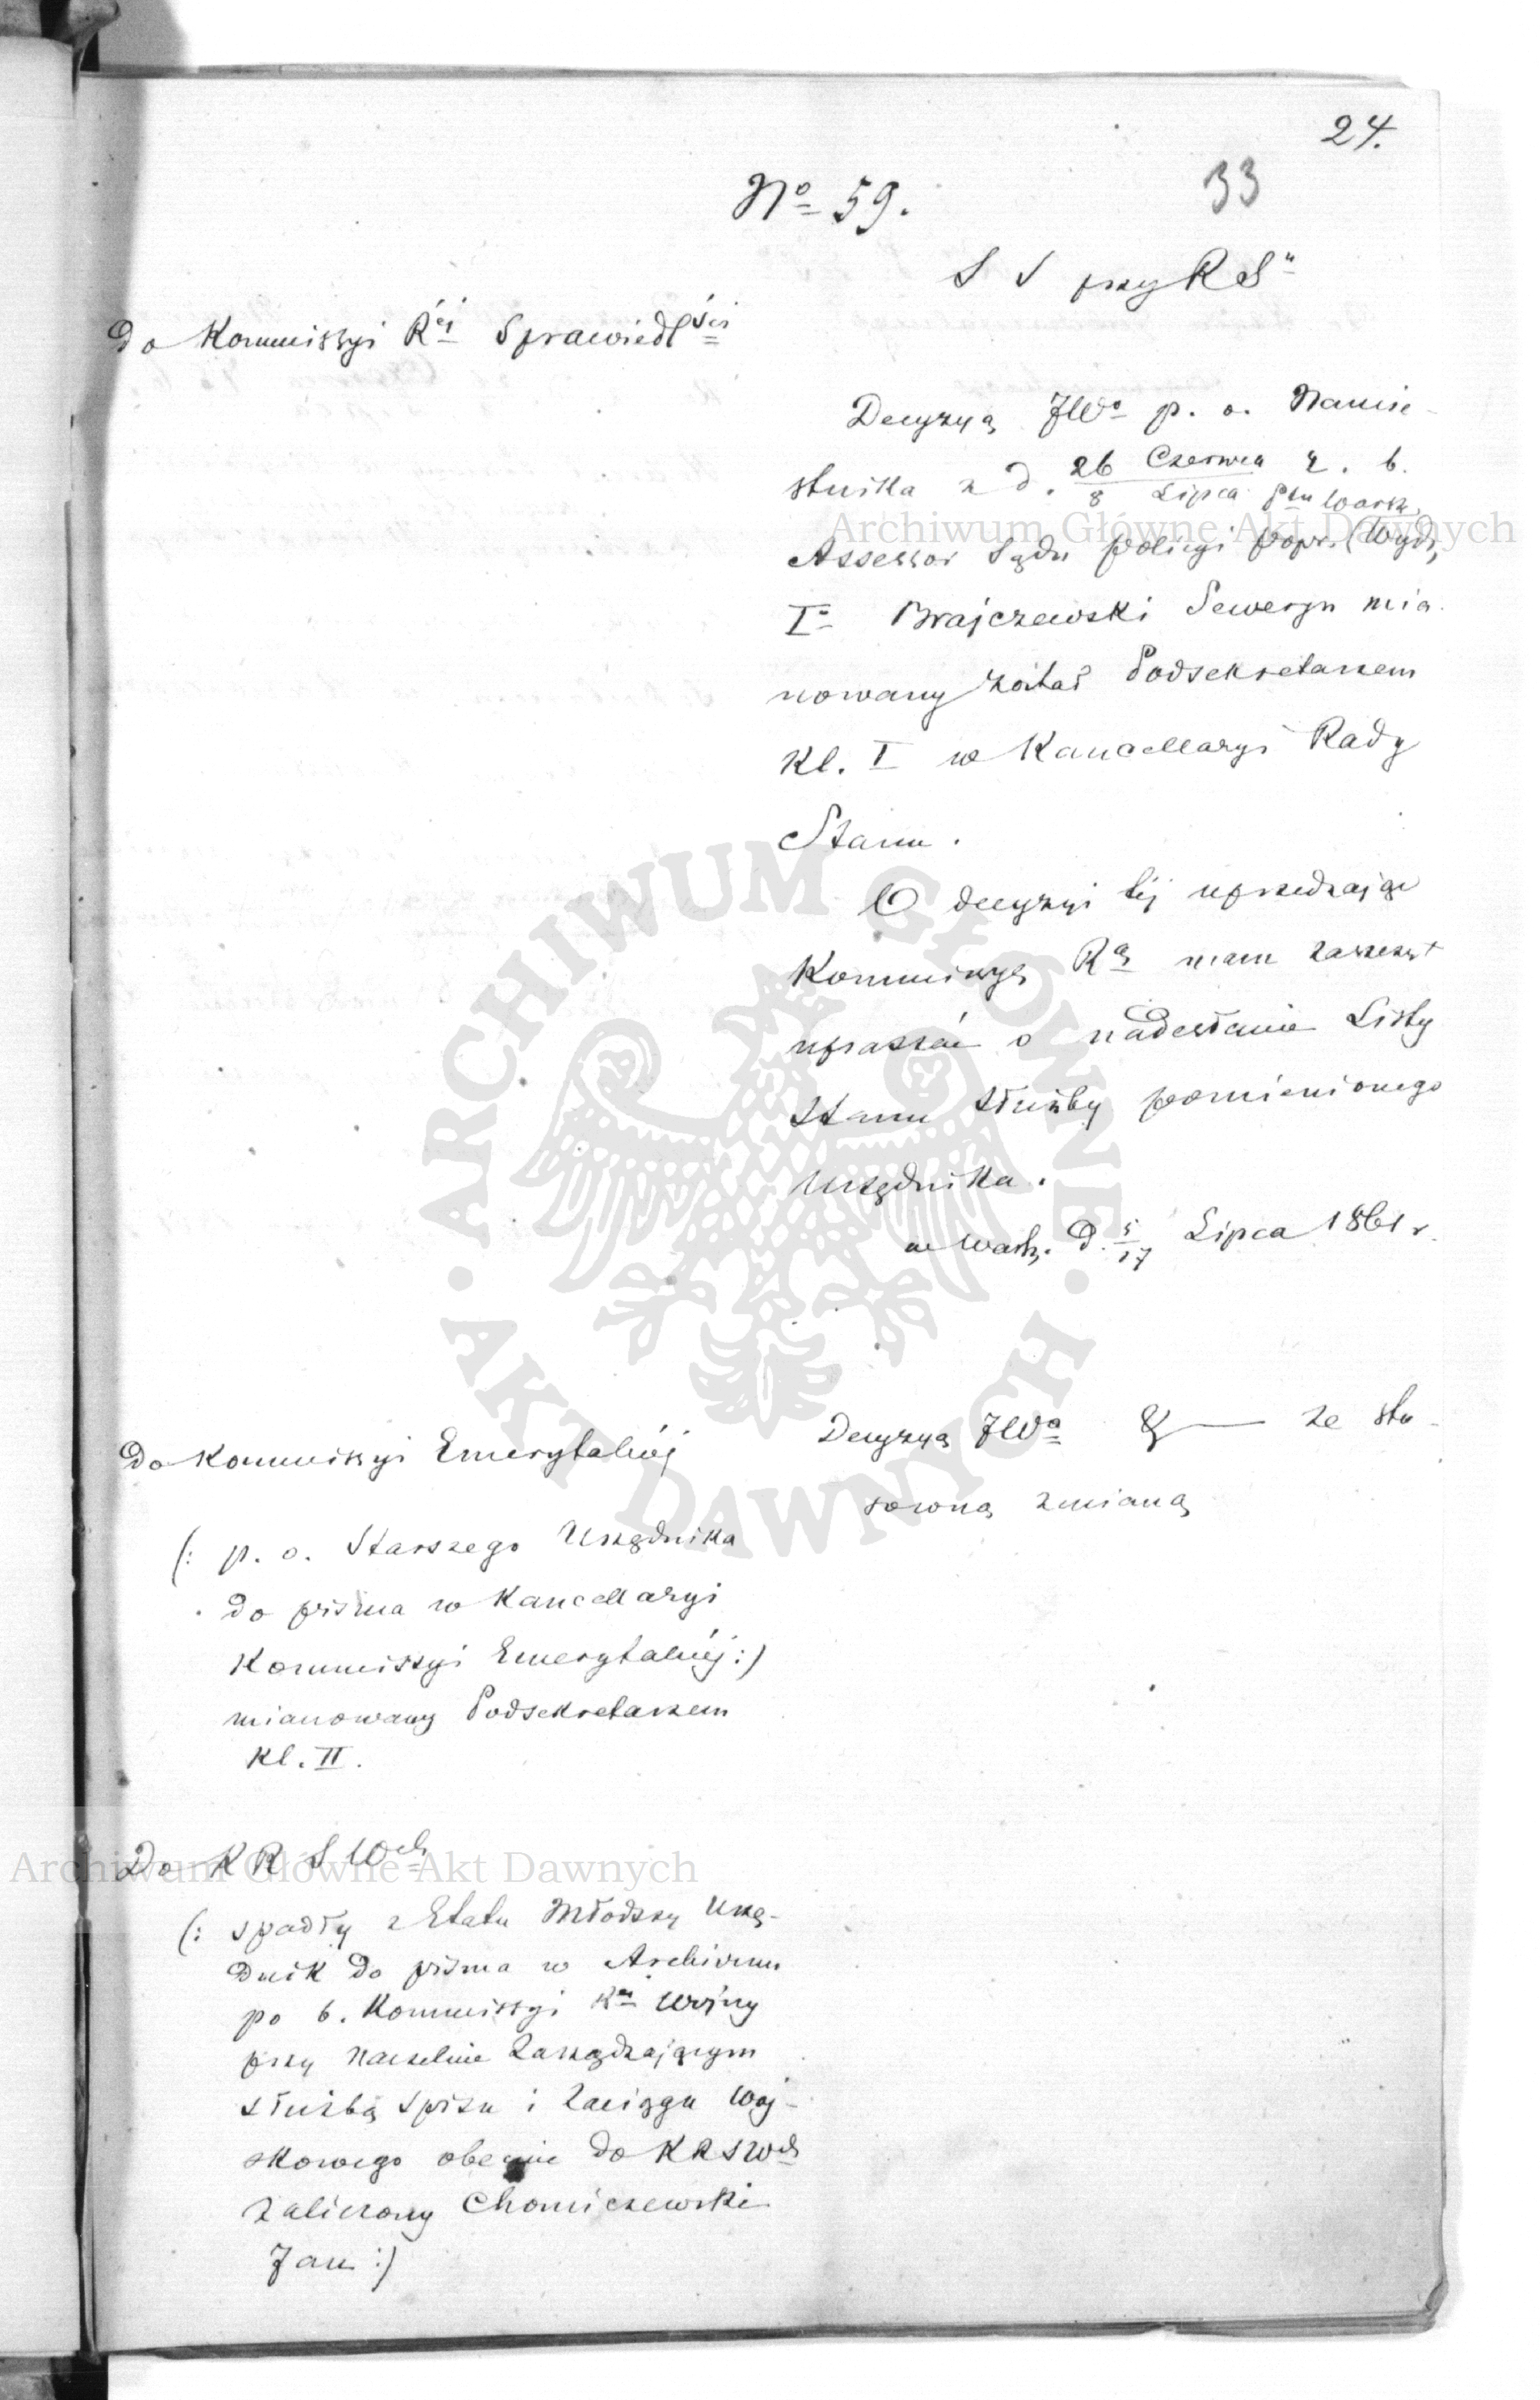 24.
33
No 59.
S S przy RSu
Do Kommissyi Réj Sprawiedlści
Decyzyą JWo p. o. Namie-
stnika z d. 26 Czerwca / 8 Lipca r. b.
Ptu Warsz.
Assessor Sądu Policyi Popr. Wydz,
Io Brajczewski Seweryn mia-
nowany został Podsekretarzem
Kl. I w Kancellaryi Rady
Stanu.
O decyzyi téj uprzedzając
Kommissyę Rą mam zaszczyt
upraszać o nadesłanie Listy
Stanu Służby pomienionego
Urzędnika.
w Warsz. d. 5/17 Lipca 1861 r.
Do Kommissyi Emerytalnéj
(: p. o. Starszego Urzędnika
do pisma w Kancellaryi
Kommissyi Emerytalnéj :)
mianowany Podsekretarzem
Kl. II.
Decyzyą JWo & — ze sto-
sowną zmianą
Do K R S Wch
(: spadły z Etatu Młodszy Urzę-
dnik do pisma w Archiwum
po b. Kommissyi Réj Wojny
przy Naczelnie Zarządzającym
służbą spisu i zaciągu Woj-
skowego obecnie do KRSWch
zaliczony Chomiczewski
Jan :)
Archiwum Główne Akt Dawnych
ARCHIWUM GŁÓWNE AKT DAWNYCH
Archiwum Główne Akt Dawnych